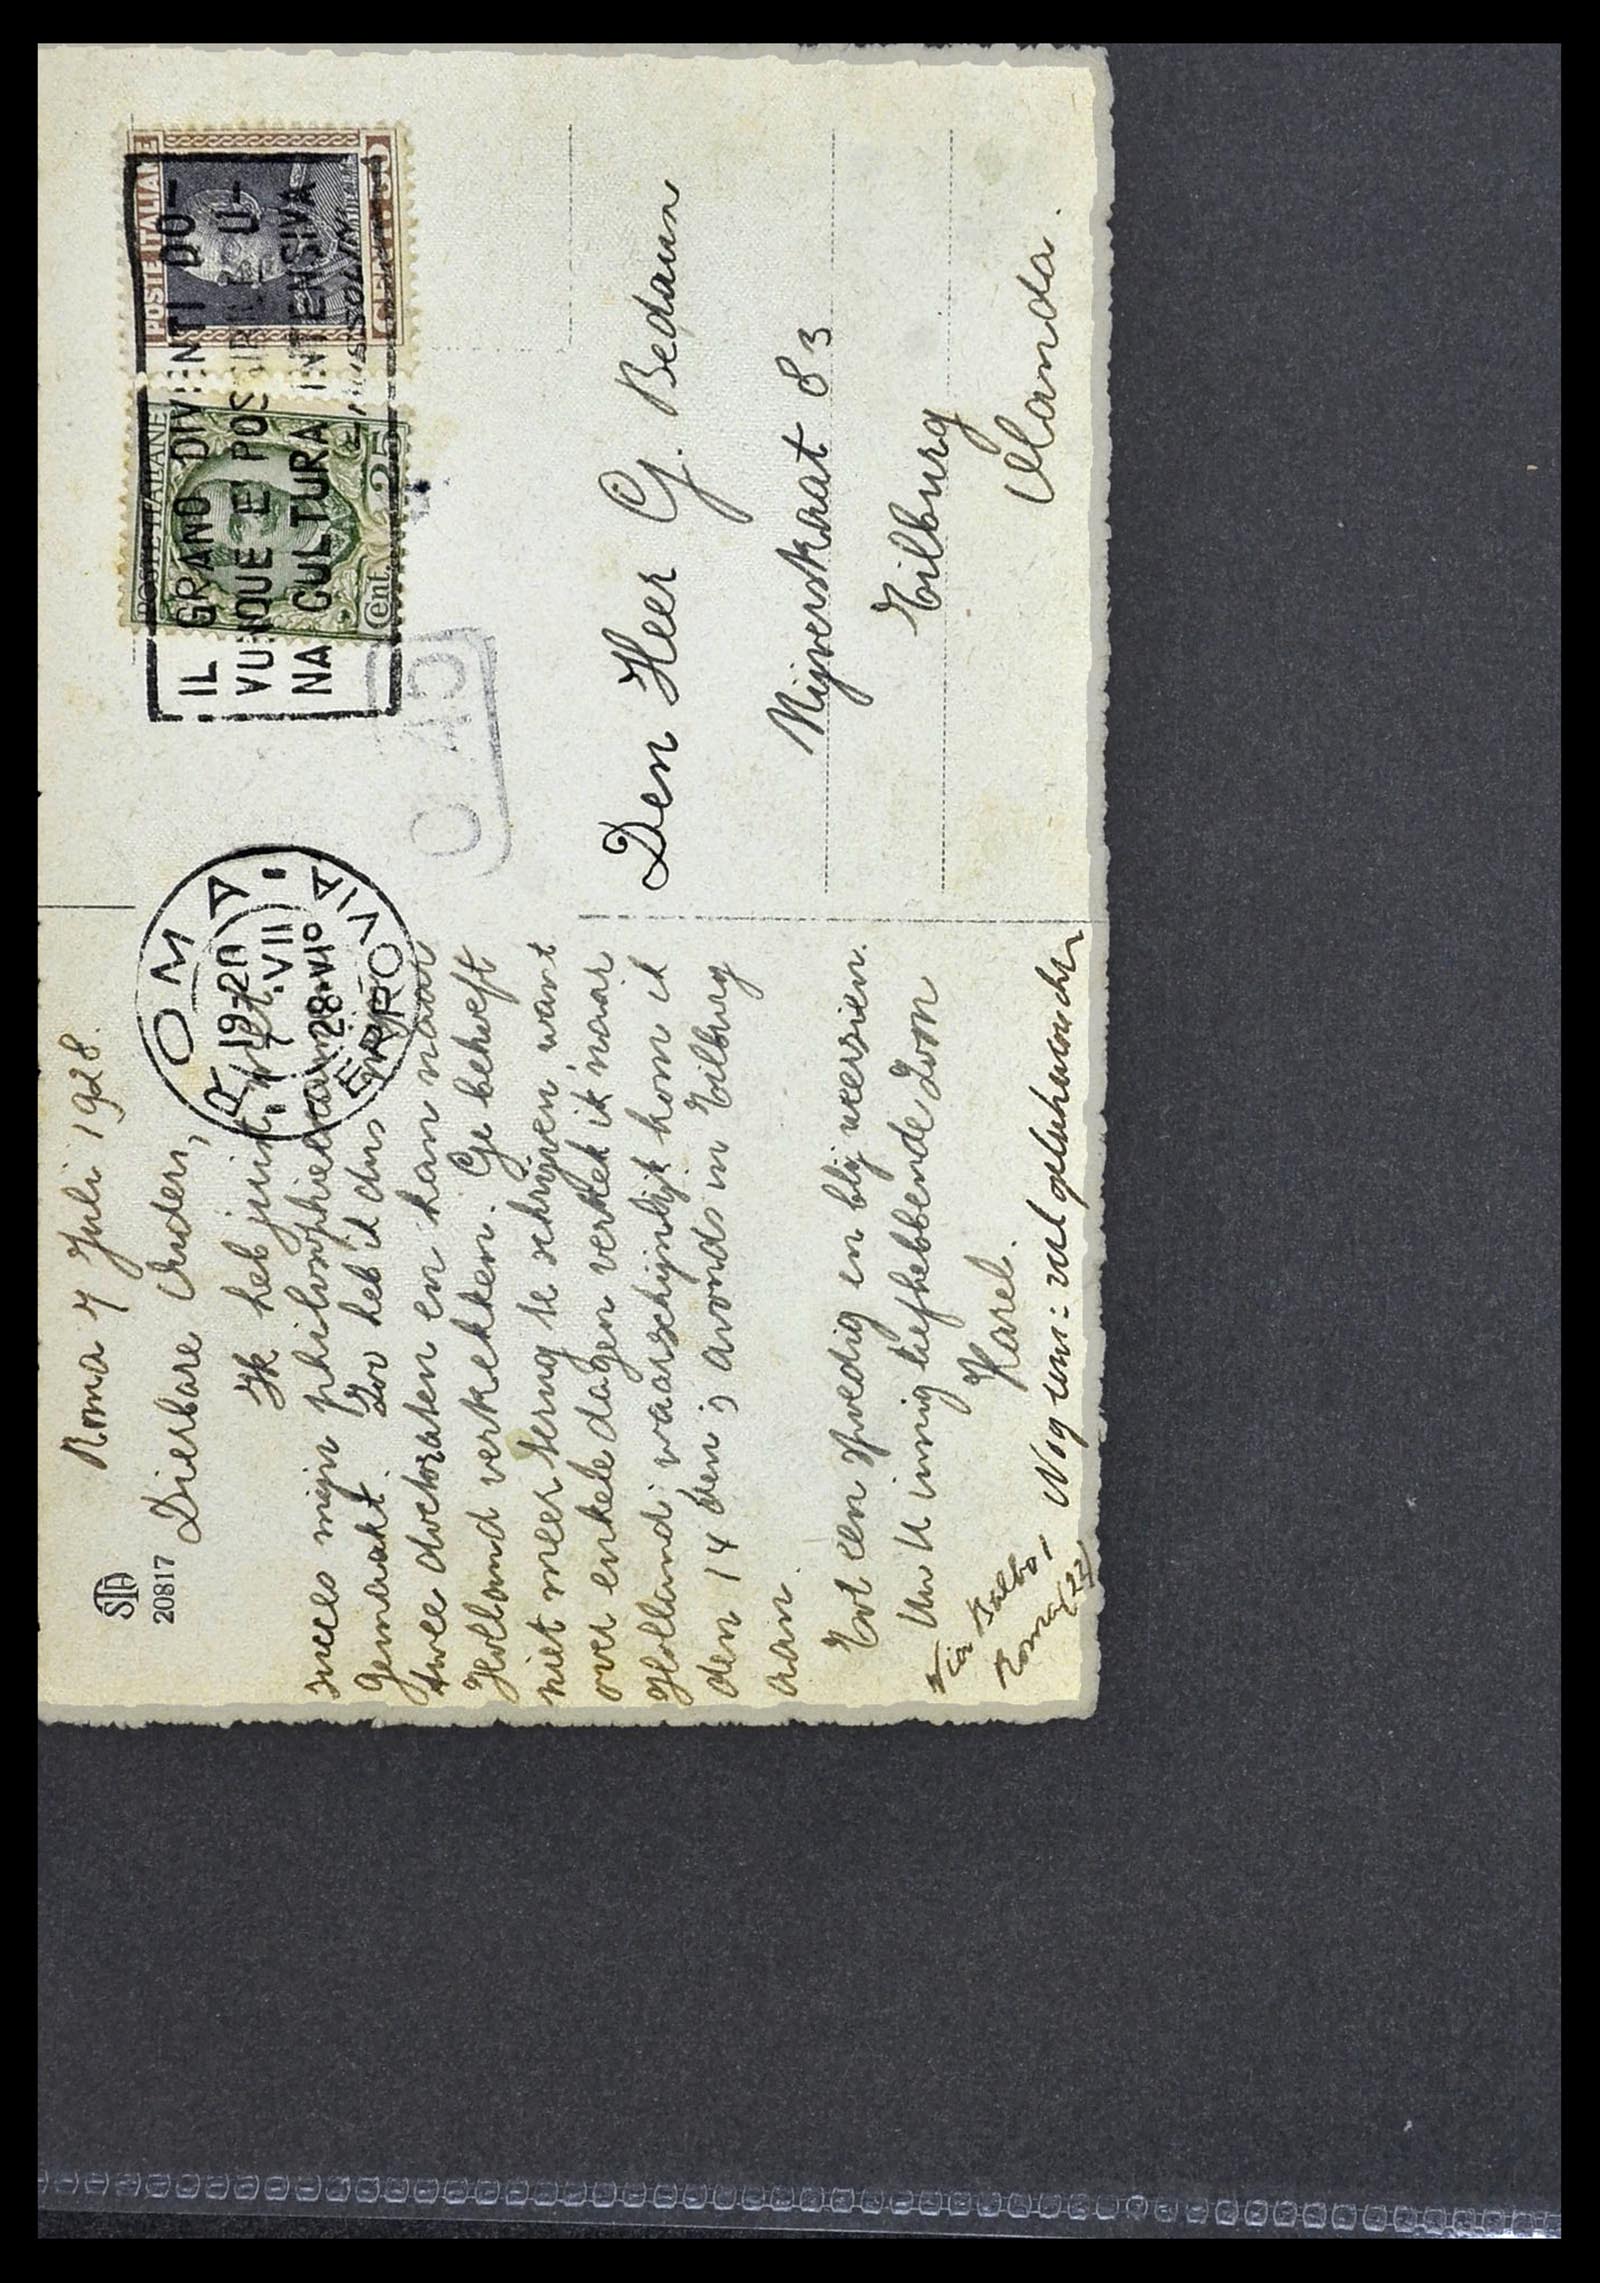 STA
20817
Roma 7 Juli 1928.
Dierbare Ouders,
Ik heb juist met
succes mijn philosophieexamen
gemaakt. Zoo heb ik dus mijn
twee doctoraten en kan naar
Holland vertrekken. Ge behoeft
niet meer terug te schrijven want
over enkele dagen vertrek ik naar
Holland; waarschijnlijk kom ik
den 14den 's avonds in Tilburg
aan.
Tot een spoedig en blij weerzien.
Uw U innig liefhebbende Zoon
Karel.
Via Balbo,
Roma (22)
Nog eens: veel gelukwenschen
ROMA
FERROVIA
19-20
7.VII
1928-VI
IL GRANO DIVENTI DO-
VUNQUE E POSSIBILE U-
NA CULTURA INTENSIVA
E. MUSSOLINI
POSTE ITALIANE
Cent. 25
POSTE ITALIANE
CENT. 50
C 45
Den Heer G. Bedaux
Nijverstraat 83
Tilburg
Olanda.